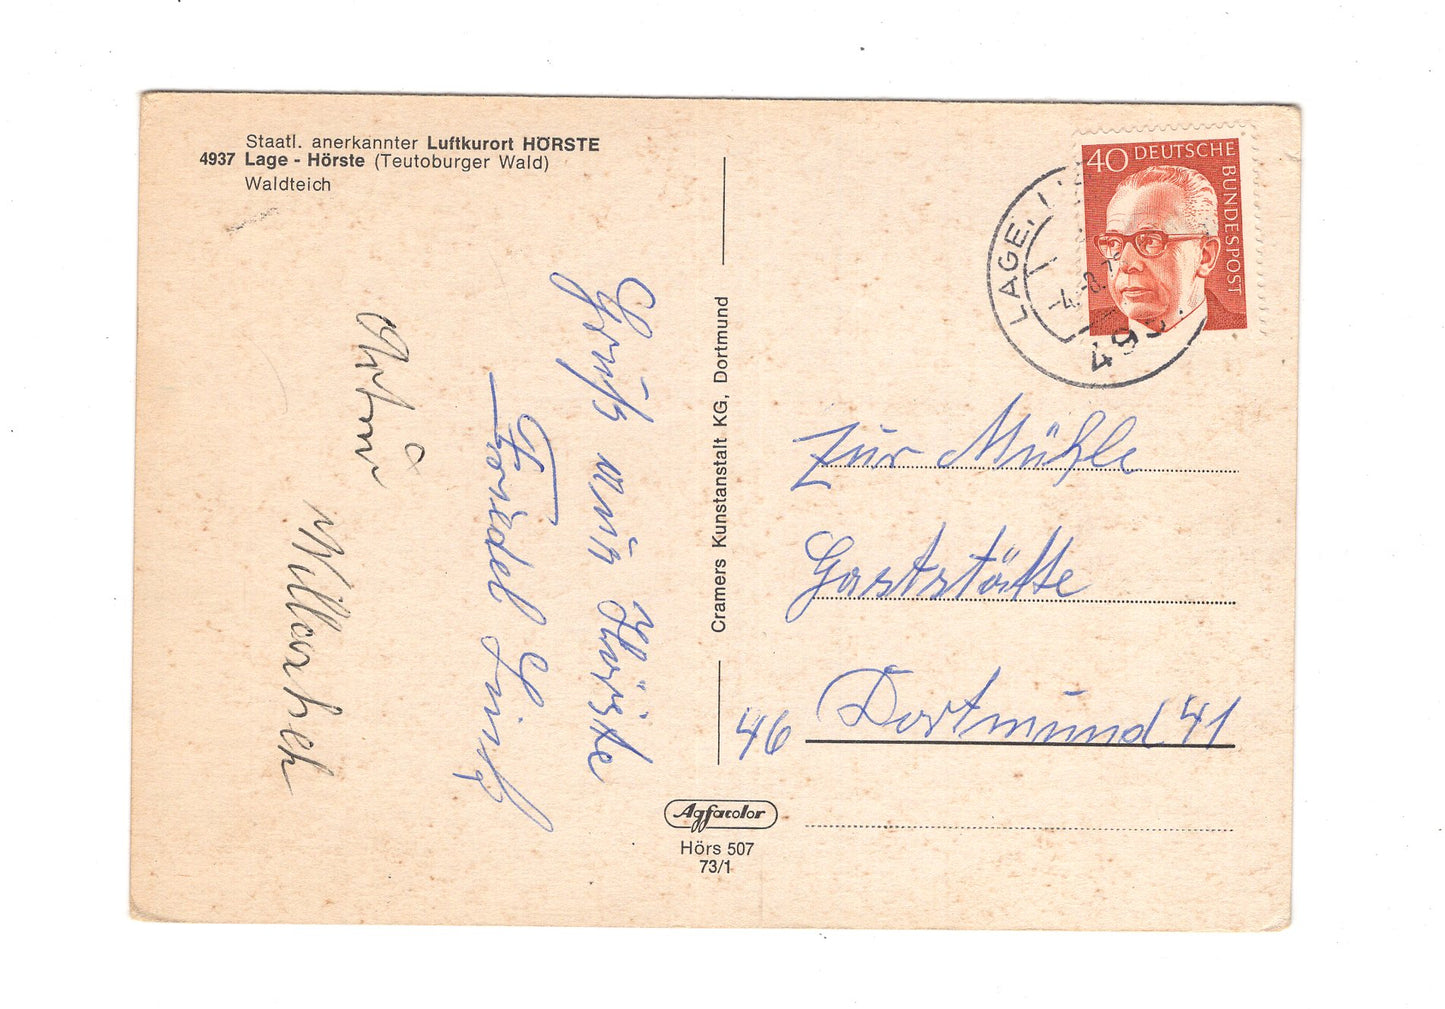 Staatl. anerkannter Luftkurort HÖRSTE
4937 Lage - Hörste (Teutoburger Wald)
Waldteich
Gruß aus Hörste
Friedel
Artur
Cramers Kunstanstalt KG, Dortmund
Agfacolor
Hörs 507
73/1
40 DEUTSCHE BUNDESPOST
LAGE
-4.-8.7
493
Zur Mühle
Gaststätte
46 Dortmund 41